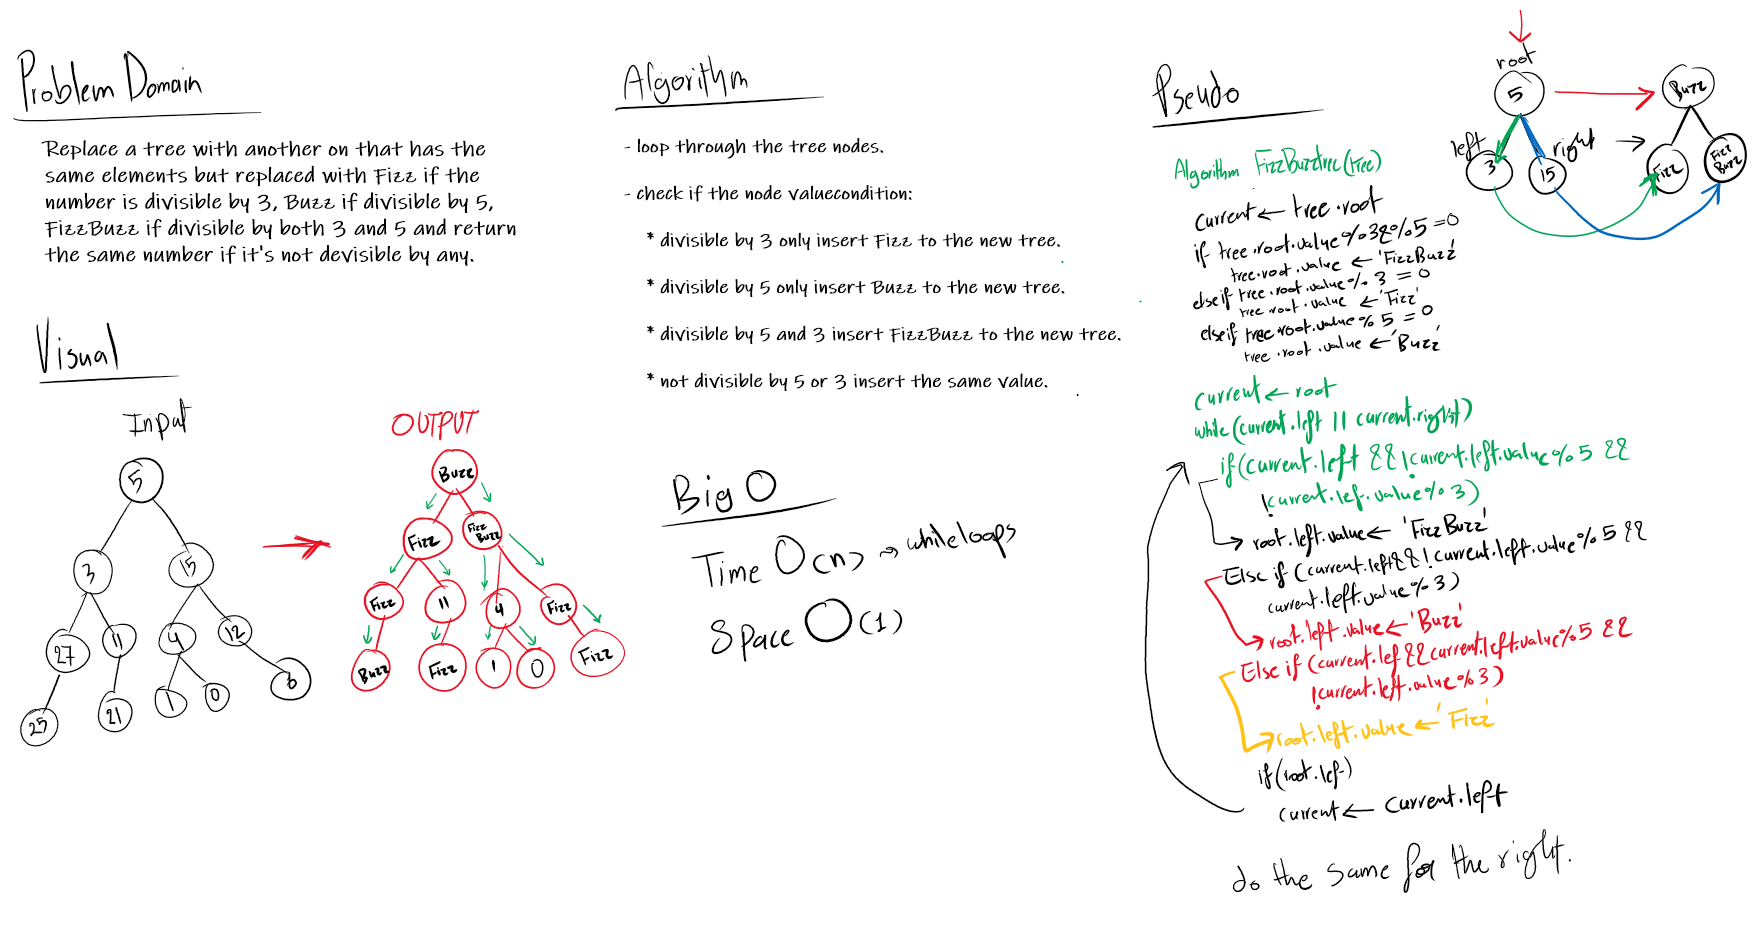 Problem Domain
Replace a tree with another on that has the
same elements but replaced with Fizz if the
number is divisible by 3, Buzz if divisible by 5,
FizzBuzz if divisible by both 3 and 5 and return
the same number if it's not devisible by any.
Visual
Input
5
3
15
27
11
4
12
25
21
1
0
6
OUTPUT
Buzz
Fizz
Fizz
Buzz
Fizz
11
4
Fizz
Buzz
Fizz
1
0
Fizz
Algorithm
- loop through the tree nodes.
- check if the node valuecondition:
* divisible by 3 only insert Fizz to the new tree.
* divisible by 5 only insert Buzz to the new tree.
* divisible by 5 and 3 insert FizzBuzz to the new tree.
* not divisible by 5 or 3 insert the same value.
Big O
Time O(n) → while loops
Space O(1)
Pseudo
root
5
left
3
right
15
Buzz
Fizz
Fizz
Buzz
Algorithm FizzBuzztree(tree)
current ← tree.root
if tree.root.value%3&%5=0
tree.root.value ← 'FizzBuzz'
else if tree.root.value % 3 = 0
tree.root.value ← 'Fizz'
else if tree.root.value % 5 = 0
tree.root.value ← 'Buzz'
current ← root
while (current.left || current.right)
if (current.left && !current.left.value % 5 &&
!current.lef.value % 3)
root.left.value ← 'FizzBuzz'
Else if (current.left && !current.left.value % 5 &&
current.left.value % 3)
root.left.value ← 'Buzz'
Else if (current.lef && current.left.value % 5 &&
!current.left.value % 3)
root.left.value ← 'Fizz'
if (root.lef)
current ← current.left
do the same for the right.